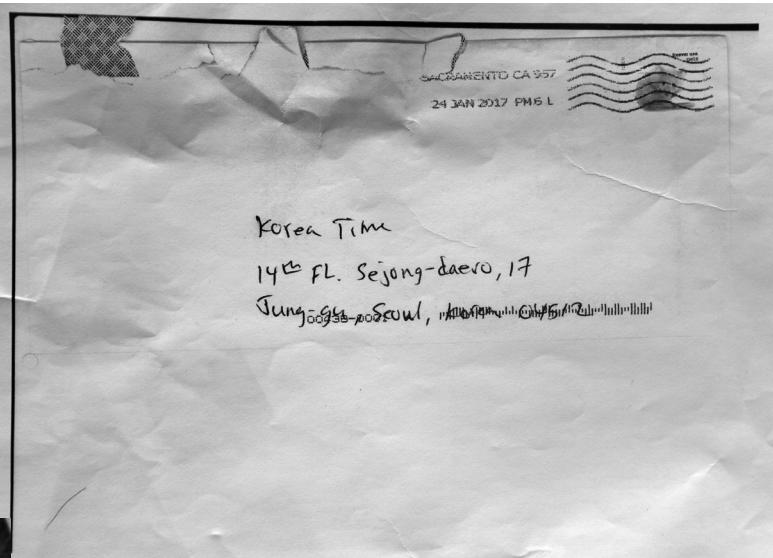 SACRAMENTO CA 957
24 JAN 2017 PM 6 L
Korea Time
14th FL. Sejong-daero, 17
Jung-gu, Seoul, Korea 04512